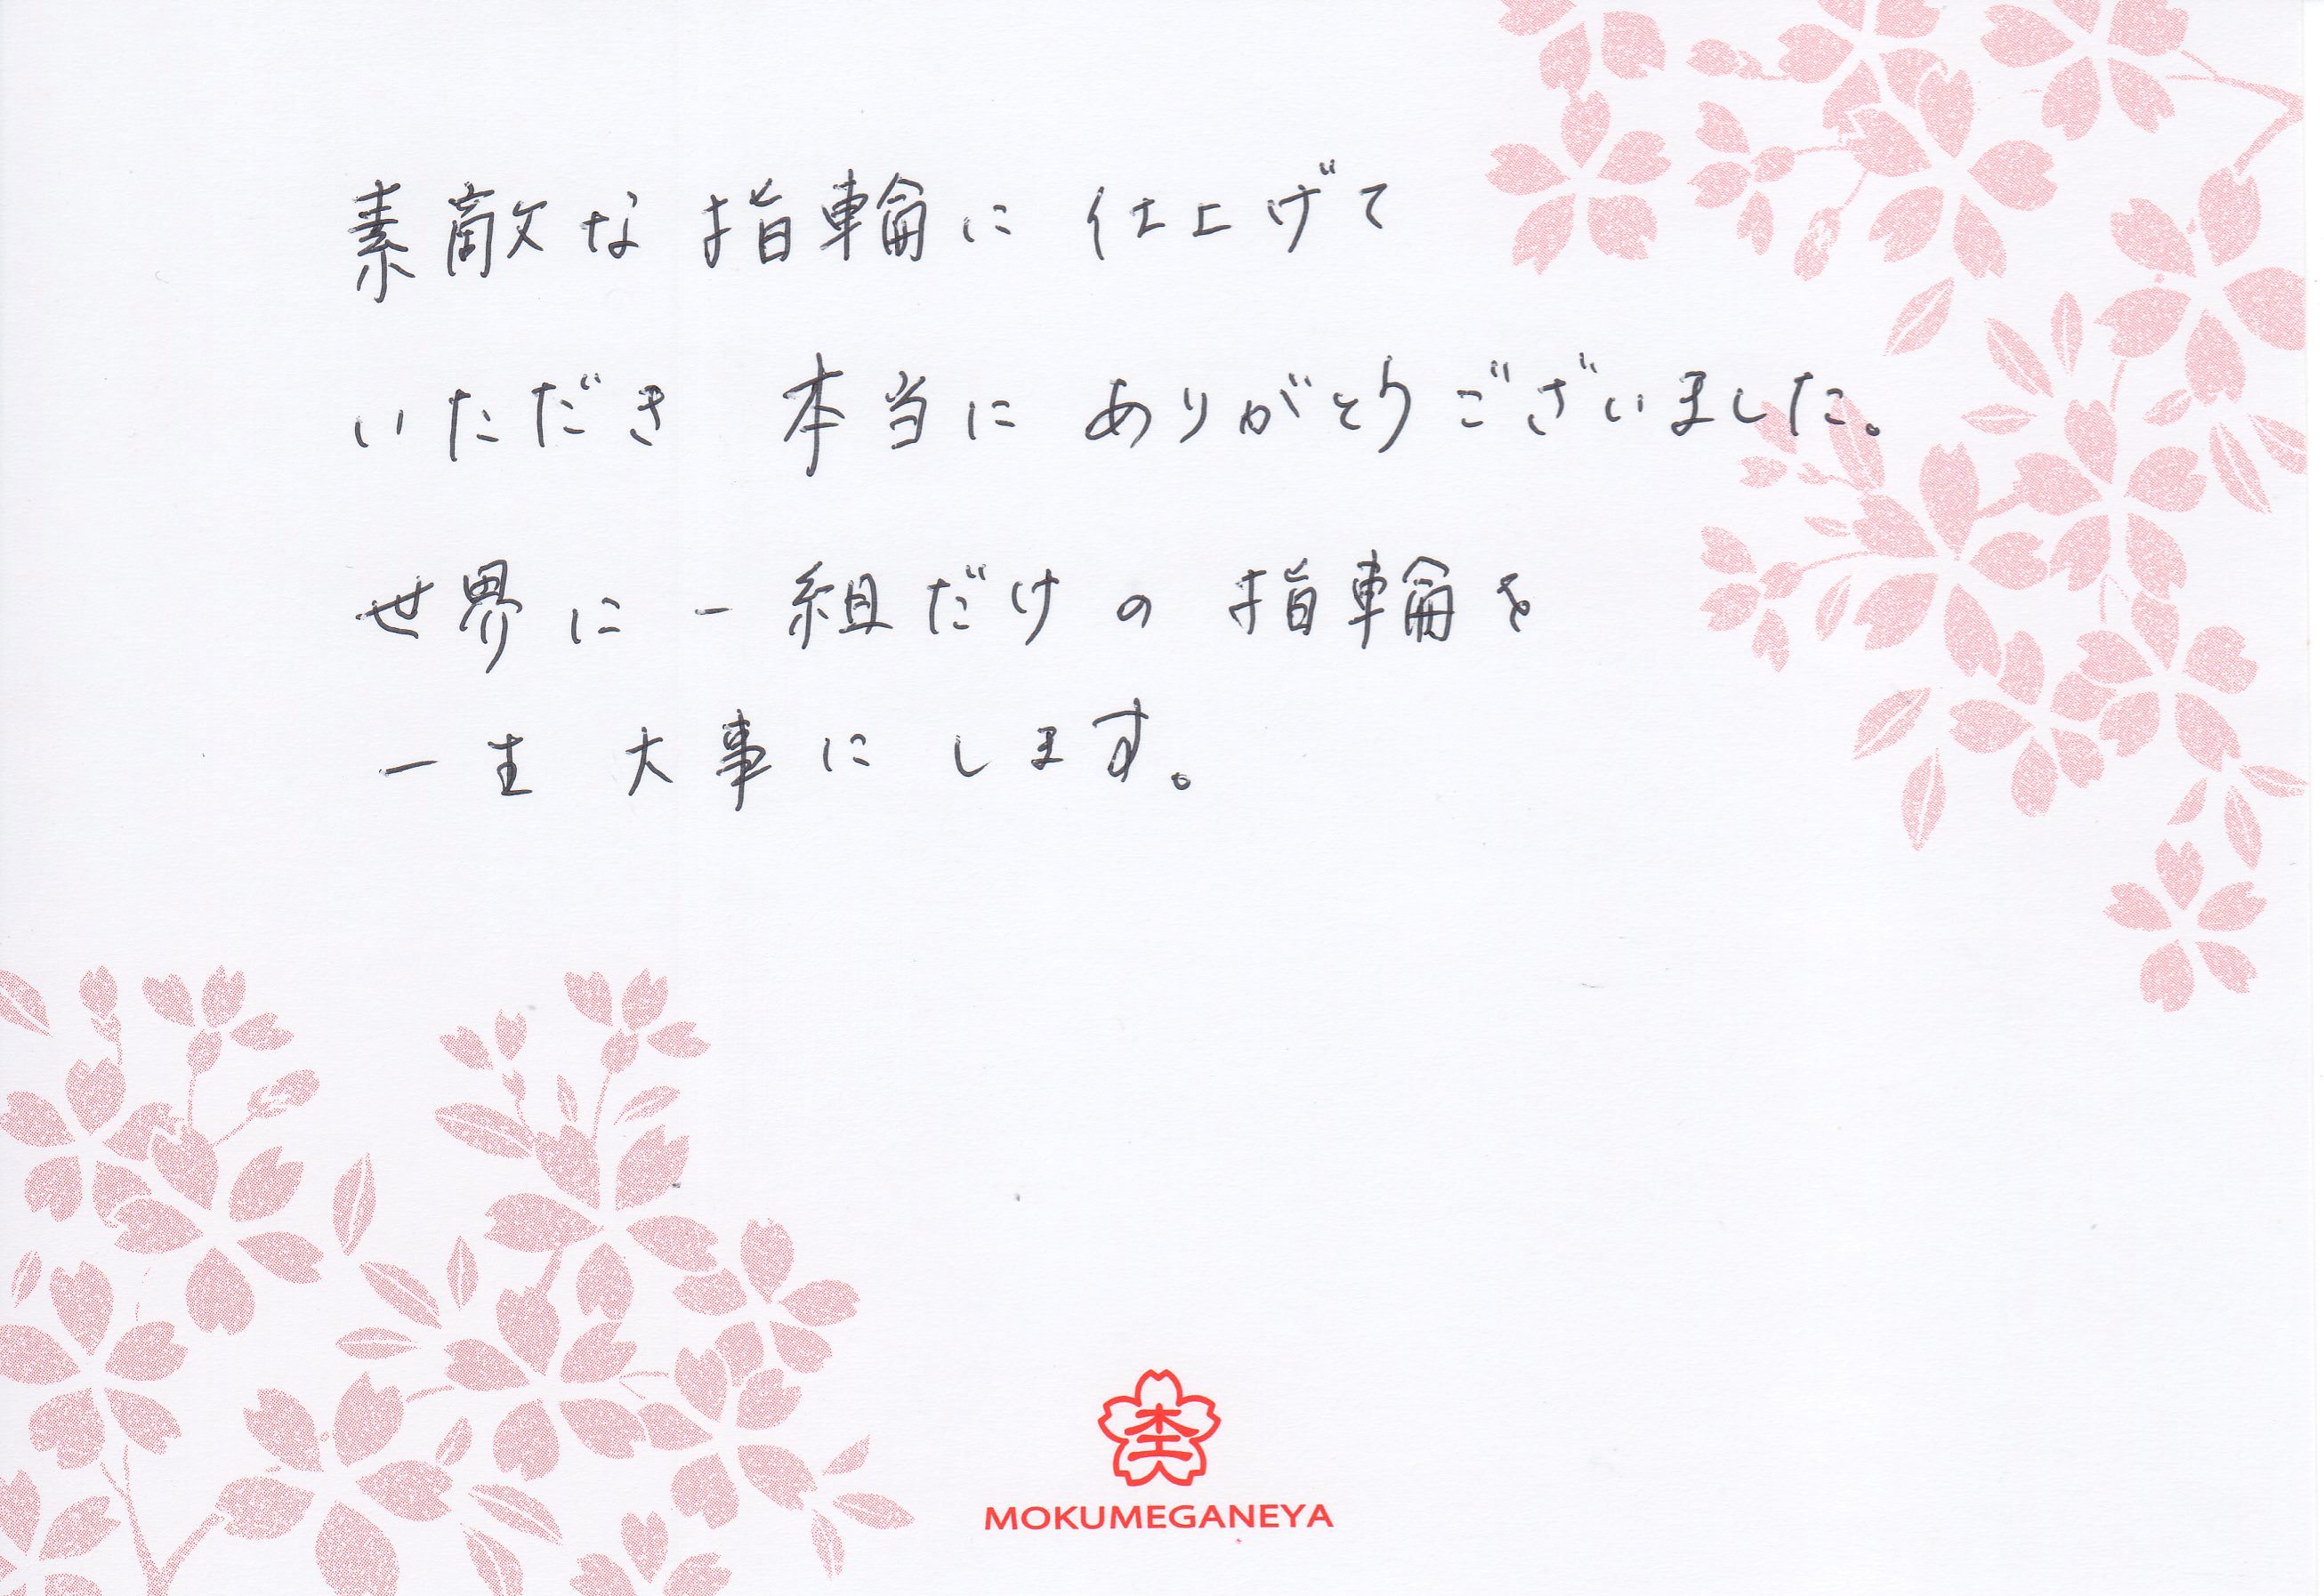 素敵な指輪に 仕上げて
いただき 本当に ありがとうございました。
世界に一組だけの指輪を
一生 大事にします。
杢
MOKUMEGANEYA